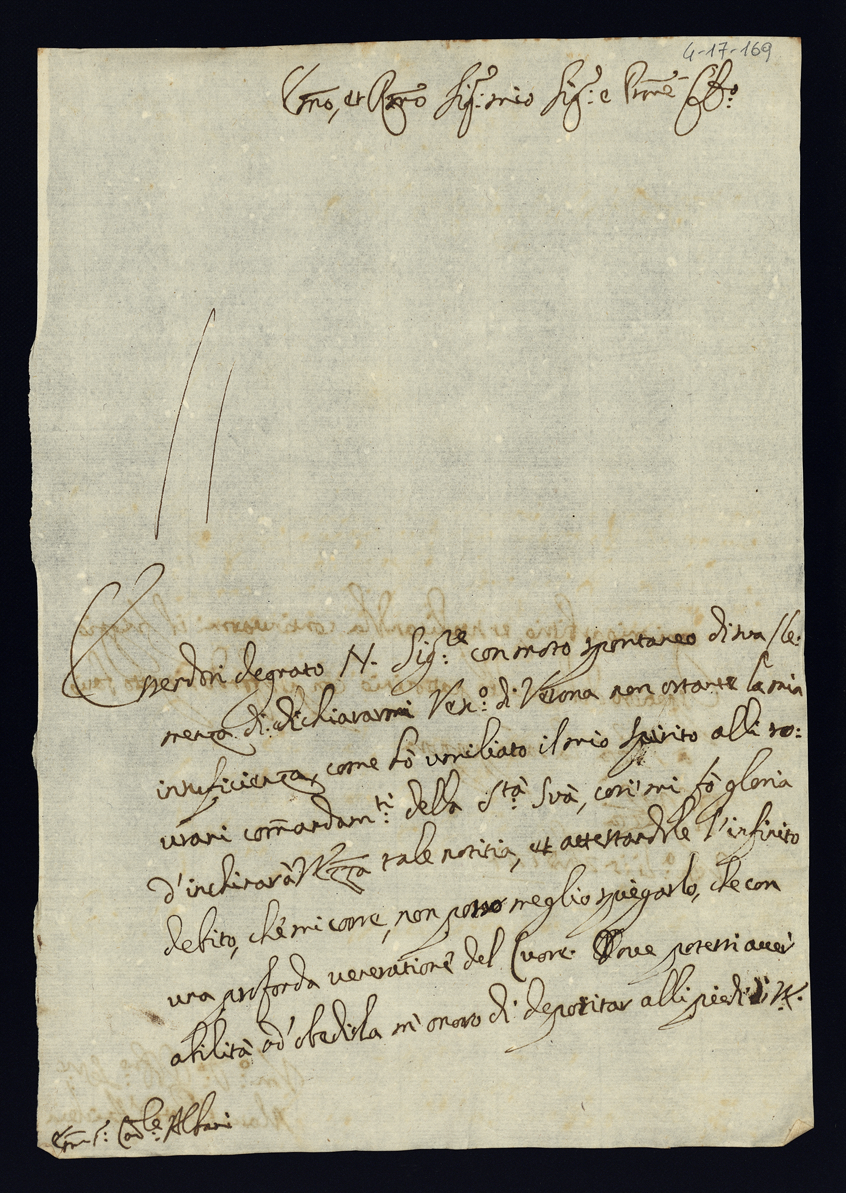 4-17-169
Emo, et Rmo Sig.r mio Sig.r e Prone Col.mo
Essendosi degnato N. Sig.re con moto spontaneo di sua Cle:
menza di dichiararmi Vesc.o di Verona non ostante la mia
insuficienza, come hò umiliato il mio spirito alli so:
urani com̃andam.ti della S.tà Suà, così mi fò gloria
d'inchinar à V. Emza tale notitia, et attestandole l'infinito
debito, che mi corre, non posso meglio spiegarlo, che con
una profonda veneratione del Cuore. Dove potessi aver
abilità ad' obedirla m'onoro di depositar alli piedi di V.
Card.le Albani